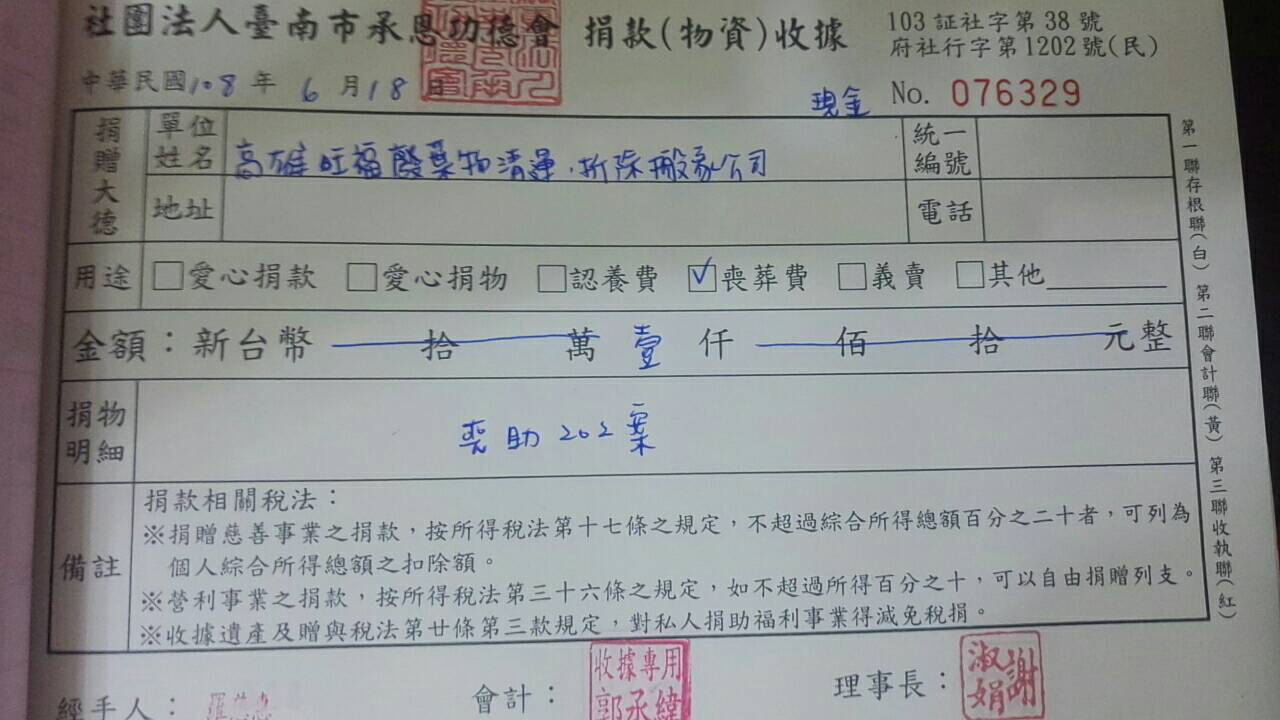 社團法人臺南市承恩功德會 捐款(物資)收據
103 証社字第 38 號
府社行字第 1202 號(民)
中華民國 108 年 6 月 18 日
現金 No. 076329
捐贈大德
單位姓名 高雄旺福廢棄物清運.拆除搬家公司
統一編號
地址
電話
用途 □愛心捐款 □愛心捐物 □認養費 ☑喪葬費 □義賣 □其他
金額：新台幣 拾 萬 壹 仟 佰 拾 元整
捐物明細
喪助 202 案
備註
捐款相關稅法：
※捐贈慈善事業之捐款，按所得稅法第十七條之規定，不超過綜合所得總額百分之二十者，可列為
個人綜合所得總額之扣除額。
※營利事業之捐款，按所得稅法第三十六條之規定，如不超過所得百分之十，可以自由捐贈列支。
※收據遺產及贈與稅法第廿條第三款規定，對私人捐助福利事業得減免稅捐。
第一聯存根聯(白) 第二聯會計聯(黃) 第三聯收執聯(紅)
經手人：
會計：
收據專用
郭承緯
理事長：
謝淑娟